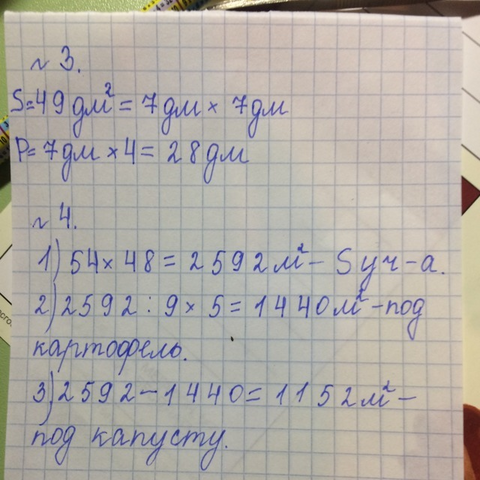 № 3.
S=49 дм² = 7 дм × 7 дм
P= 7 дм × 4 = 28 дм
№ 4.
1) 54 × 48 = 2592 м² – S уч-а.
2) 2592 : 9 × 5 = 1440 м² – под
картофель.
3) 2592 – 1440 = 1152 м² –
под капусту.